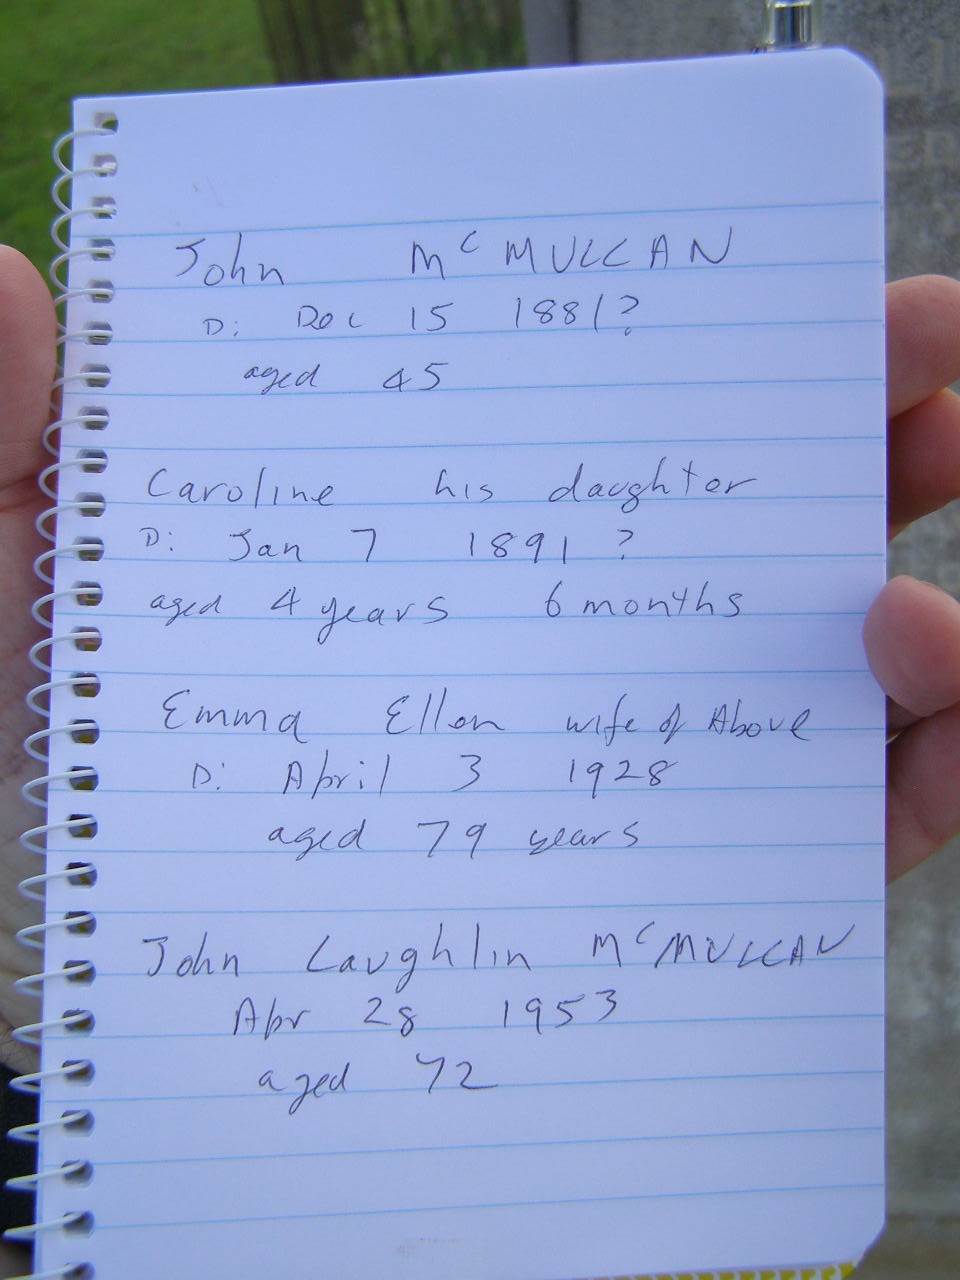 John McMULLAN
D: Dec 15 1881?
aged 45
Caroline his daughter
D: Jan 7 1891 ?
aged 4 years 6 months
Emma Ellen wife of Above
D: April 3 1928
aged 79 years
John Laughlin McMULLAN
Apr 28 1953
aged 72